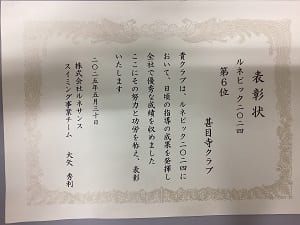 表彰状
ルネピック二〇二四
第６位
甚目寺クラブ
貴クラブは、ルネピック二〇二四に
おいて、日頃の指導の成果を発揮し
全社で優秀な成績を収めました
ここにその努力と功労を称え、表彰
いたします
二〇二五年五月三十日
株式会社ルネサンス
スイミング事業チーム　大矢　秀利